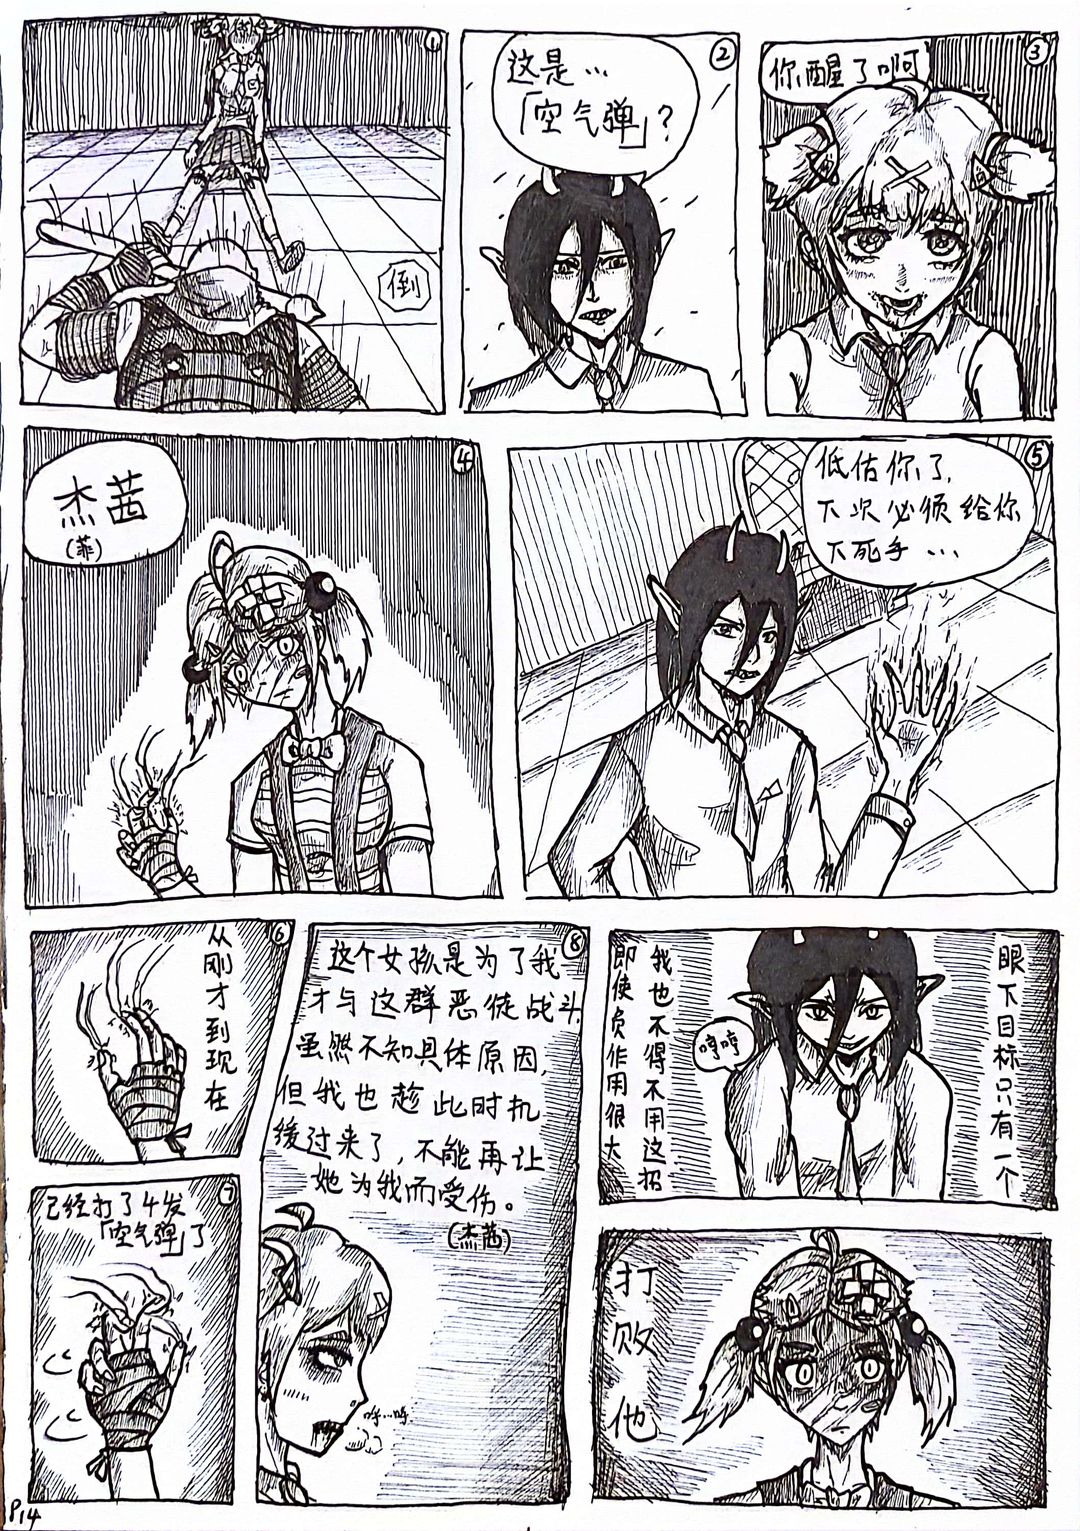 ①
倒
②
这是…
「空气弹」?
③
你醒了啊
④
杰茜
(菲)
⑤
低估你了,
下次必须给你
下死手…
⑥
从刚才到现在
⑦
已经打了4发
「空气弹」了
⑧
这个女孩是为了我
才与这群恶徒战斗
虽然不知具体原因,
但我也趁此时机
缓过来了,不能再让
她为我而受伤。
(杰茜)
哼…哼
眼下目标只有一个
我也不得不用这招
即使负作用很大
哼哼
打败他
P14